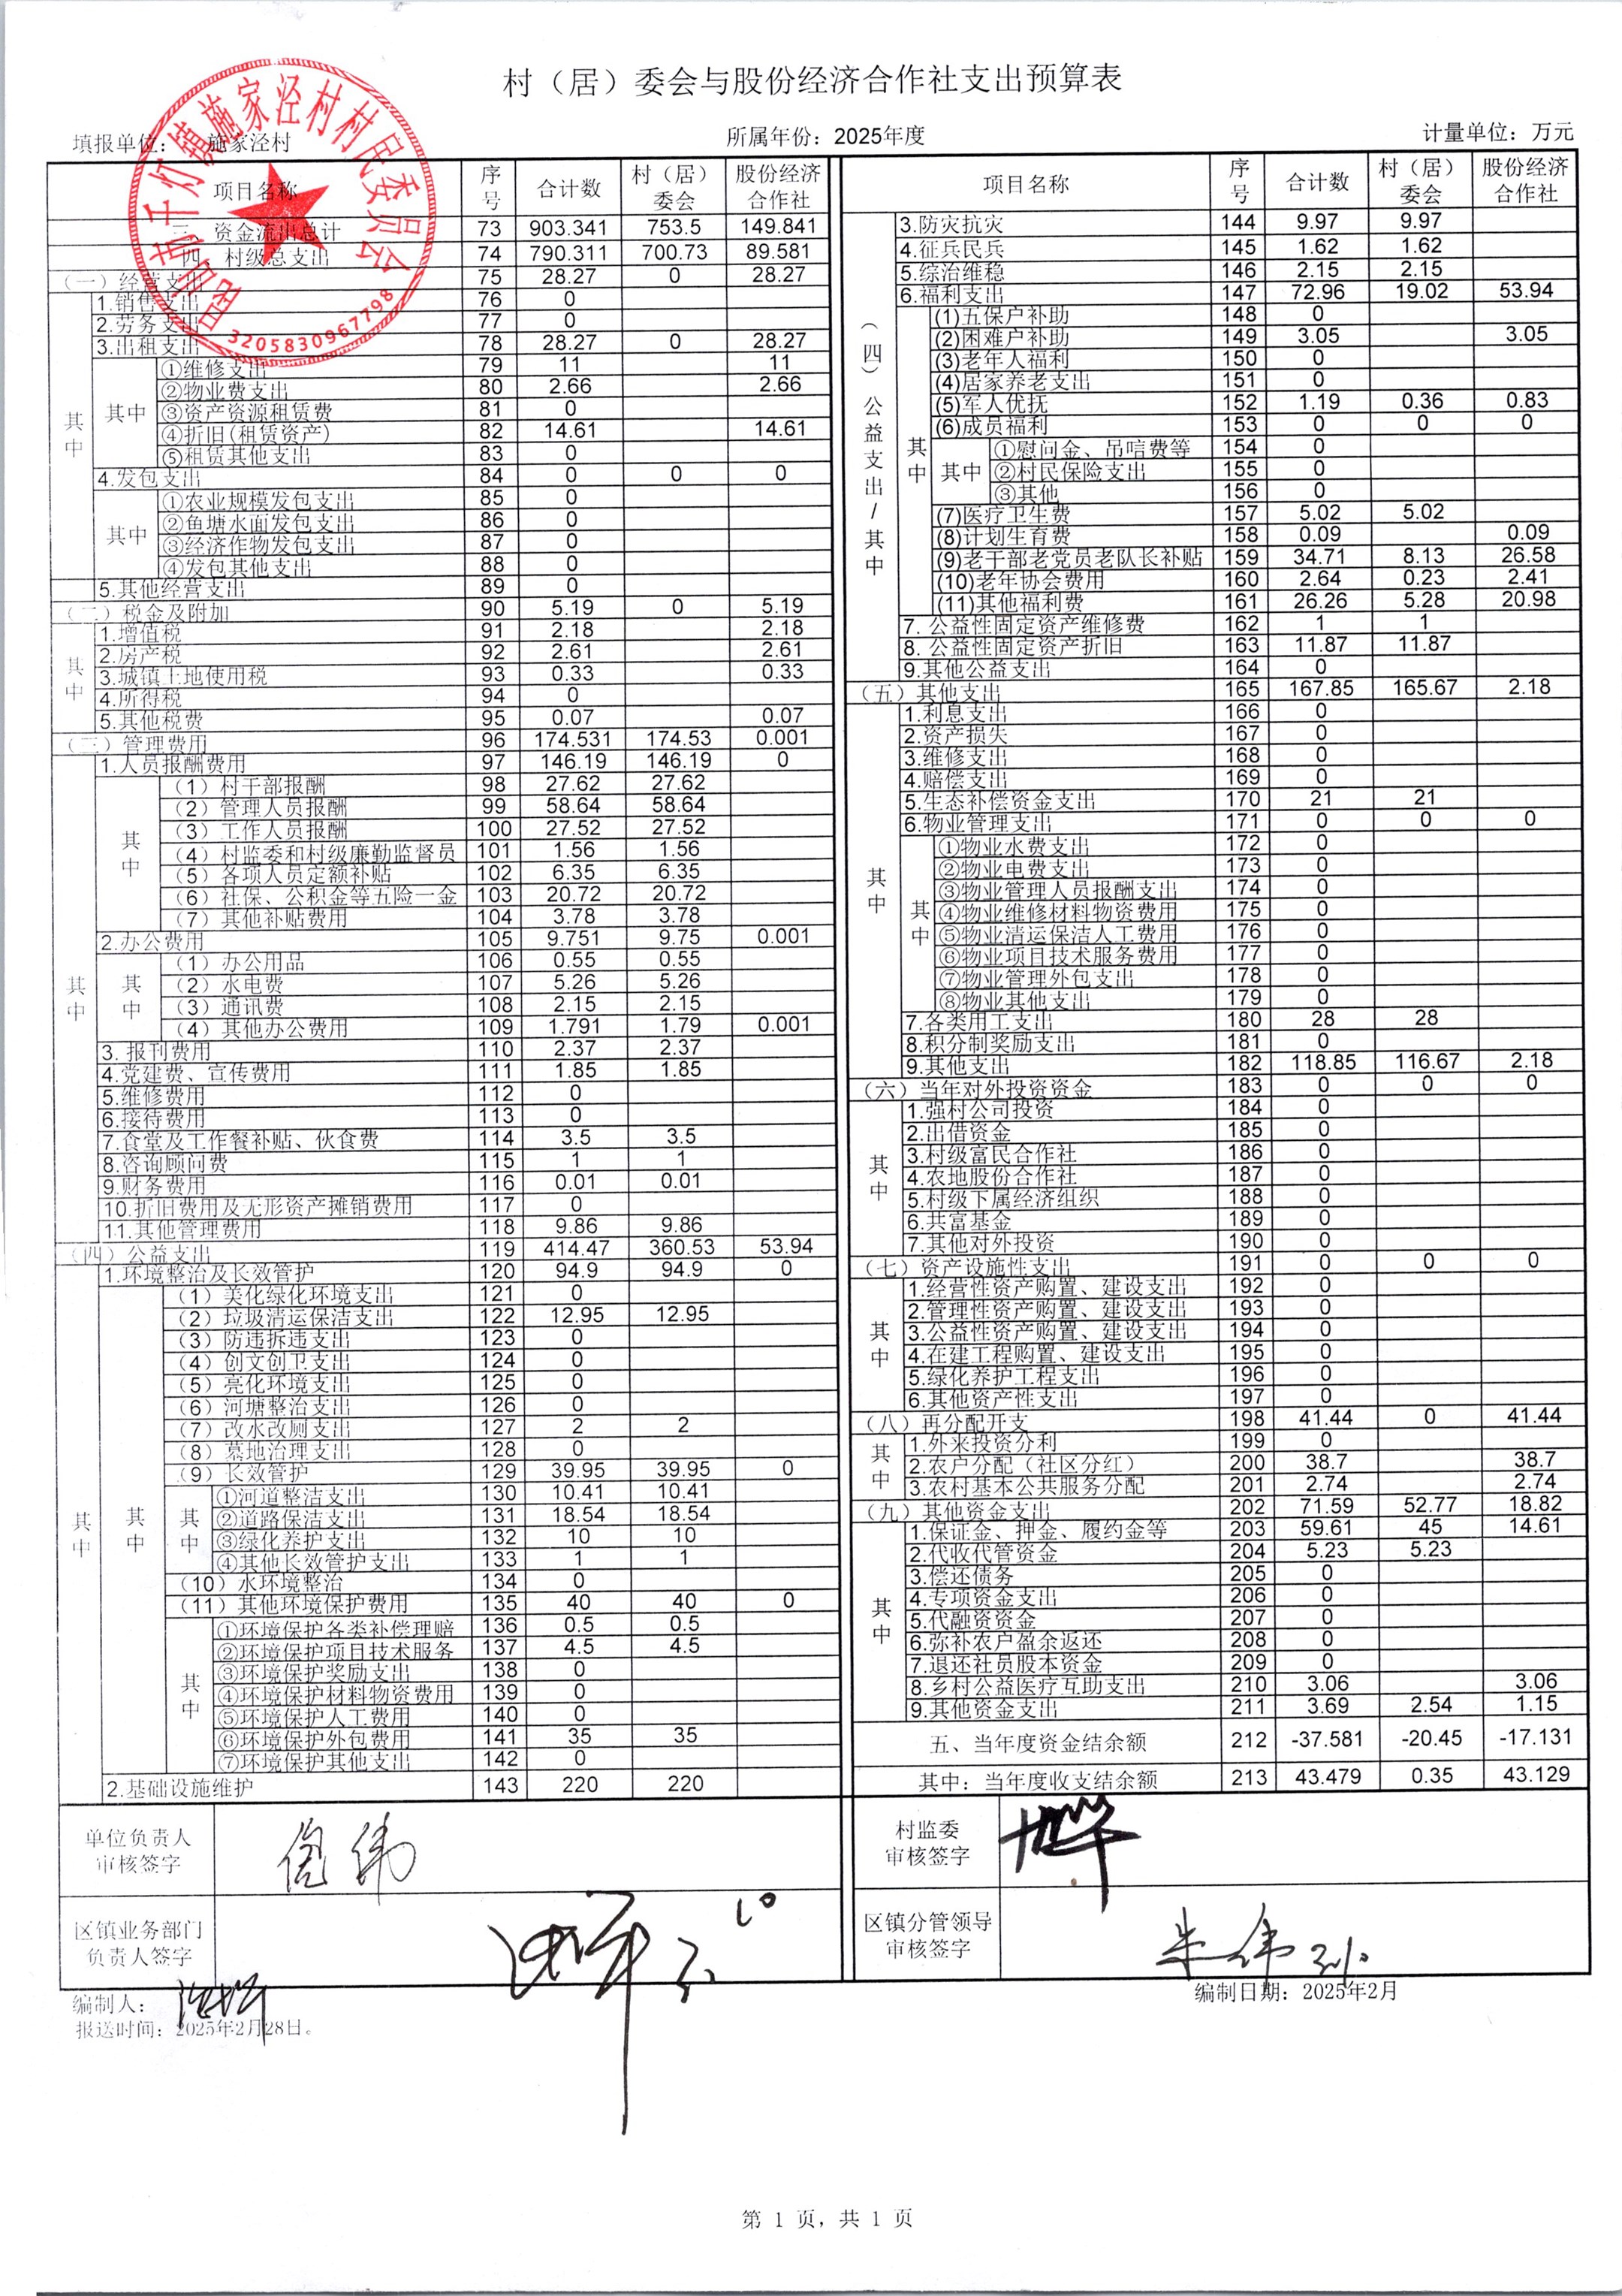 村（居）委会与股份经济合作社支出预算表
填报单位： 施家泾村 所属年份：2025年度 计量单位：万元
昆山市千灯镇施家泾村村民委员会
3205830967798
项目名称 序号 合计数 村（居）委会 股份经济合作社
三、资金流出总计 73 903.341 753.5 149.841
四、村级总支出 74 790.311 700.73 89.581
（一）经营支出 75 28.27 0 28.27
其中
1.销售支出 76 0
2.劳务支出 77 0
3.出租支出 78 28.27 0 28.27
其中
①维修支出 79 11 11
②物业费支出 80 2.66 2.66
③资产资源租赁费 81 0
④折旧(租赁资产) 82 14.61 14.61
⑤租赁其他支出 83 0
4.发包支出 84 0 0 0
其中
①农业规模发包支出 85 0
②鱼塘水面发包支出 86 0
③经济作物发包支出 87 0
④发包其他支出 88 0
5.其他经营支出 89 0
（二）税金及附加 90 5.19 0 5.19
其中
1.增值税 91 2.18 2.18
2.房产税 92 2.61 2.61
3.城镇土地使用税 93 0.33 0.33
4.所得税 94 0
5.其他税费 95 0.07 0.07
（三）管理费用 96 174.531 174.53 0.001
其中
1.人员报酬费用 97 146.19 146.19 0
其中
（1）村干部报酬 98 27.62 27.62
（2）管理人员报酬 99 58.64 58.64
（3）工作人员报酬 100 27.52 27.52
（4）村监委和村级廉勤监督员 101 1.56 1.56
（5）各项人员定额补贴 102 6.35 6.35
（6）社保、公积金等五险一金 103 20.72 20.72
（7）其他补贴费用 104 3.78 3.78
2.办公费用 105 9.751 9.75 0.001
其中
（1）办公用品 106 0.55 0.55
（2）水电费 107 5.26 5.26
（3）通讯费 108 2.15 2.15
（4）其他办公费用 109 1.791 1.79 0.001
3. 报刊费用 110 2.37 2.37
4.党建费、宣传费用 111 1.85 1.85
5.维修费用 112 0
6.接待费用 113 0
7.食堂及工作餐补贴、伙食费 114 3.5 3.5
8.咨询顾问费 115 1 1
9.财务费用 116 0.01 0.01
10.折旧费用及无形资产摊销费用 117 0
11.其他管理费用 118 9.86 9.86
（四）公益支出 119 414.47 360.53 53.94
其中
1.环境整治及长效管护 120 94.9 94.9 0
其中
（1）美化绿化环境支出 121 0
（2）垃圾清运保洁支出 122 12.95 12.95
（3）防违拆违支出 123 0
（4）创文创卫支出 124 0
（5）亮化环境支出 125 0
（6）河塘整治支出 126 0
（7）改水改厕支出 127 2 2
（8）墓地治理支出 128 0
（9）长效管护 129 39.95 39.95 0
其中
①河道整洁支出 130 10.41 10.41
②道路保洁支出 131 18.54 18.54
③绿化养护支出 132 10 10
④其他长效管护支出 133 1 1
（10）水环境整治 134 0
（11）其他环境保护费用 135 40 40 0
其中
①环境保护各类补偿理赔 136 0.5 0.5
②环境保护项目技术服务 137 4.5 4.5
③环境保护奖励支出 138 0
④环境保护材料物资费用 139 0
⑤环境保护人工费用 140 0
⑥环境保护外包费用 141 35 35
⑦环境保护其他支出 142 0
2.基础设施维护 143 220 220
项目名称 序号 合计数 村（居）委会 股份经济合作社
（四）公益支出/其中
3.防灾抗灾 144 9.97 9.97
4.征兵民兵 145 1.62 1.62
5.综治维稳 146 2.15 2.15
6.福利支出 147 72.96 19.02 53.94
其中
(1)五保户补助 148 0
(2)困难户补助 149 3.05 3.05
(3)老年人福利 150 0
(4)居家养老支出 151 0
(5)军人优抚 152 1.19 0.36 0.83
(6)成员福利 153 0 0 0
其中
①慰问金、吊唁费等 154 0
②村民保险支出 155 0
③其他 156 0
(7)医疗卫生费 157 5.02 5.02
(8)计划生育费 158 0.09 0.09
(9)老干部老党员老队长补贴 159 34.71 8.13 26.58
(10)老年协会费用 160 2.64 0.23 2.41
(11)其他福利费 161 26.26 5.28 20.98
7. 公益性固定资产维修费 162 1 1
8. 公益性固定资产折旧 163 11.87 11.87
9.其他公益支出 164 0
（五）其他支出 165 167.85 165.67 2.18
其中
1.利息支出 166 0
2.资产损失 167 0
3.维修支出 168 0
4.赔偿支出 169 0
5.生态补偿资金支出 170 21 21
6.物业管理支出 171 0 0 0
其中
①物业水费支出 172 0
②物业电费支出 173 0
③物业管理人员报酬支出 174 0
④物业维修材料物资费用 175 0
⑤物业清运保洁人工费用 176 0
⑥物业项目技术服务费用 177 0
⑦物业管理外包支出 178 0
⑧物业其他支出 179 0
7.各类用工支出 180 28 28
8.积分制奖励支出 181 0
9.其他支出 182 118.85 116.67 2.18
（六）当年对外投资资金 183 0 0 0
其中
1.强村公司投资 184 0
2.出借资金 185 0
3.村级富民合作社 186 0
4.农地股份合作社 187 0
5.村级下属经济组织 188 0
6.共富基金 189 0
7.其他对外投资 190 0
（七）资产设施性支出 191 0 0 0
其中
1.经营性资产购置、建设支出 192 0
2.管理性资产购置、建设支出 193 0
3.公益性资产购置、建设支出 194 0
4.在建工程购置、建设支出 195 0
5.绿化养护工程支出 196 0
6.其他资产性支出 197 0
（八）再分配开支 198 41.44 0 41.44
其中
1.外来投资分利 199 0
2.农户分配（社区分红） 200 38.7 38.7
3.农村基本公共服务分配 201 2.74 2.74
（九）其他资金支出 202 71.59 52.77 18.82
其中
1.保证金、押金、履约金等 203 59.61 45 14.61
2.代收代管资金 204 5.23 5.23
3.偿还债务 205 0
4.专项资金支出 206 0
5.代融资资金 207 0
6.弥补农户盈余返还 208 0
7.退还社员股本资金 209 0
8.乡村公益医疗互助支出 210 3.06 3.06
9.其他资金支出 211 3.69 2.54 1.15
五、当年度资金结余额 212 -37.581 -20.45 -17.131
其中：当年度收支结余额 213 43.479 0.35 43.129
单位负责人审核签字
村监委审核签字
区镇业务部门负责人签字
区镇分管领导审核签字 朱伟
编制人：
编制日期：2025年2月
报送时间：2025年2月28日。
第 1 页，共 1 页